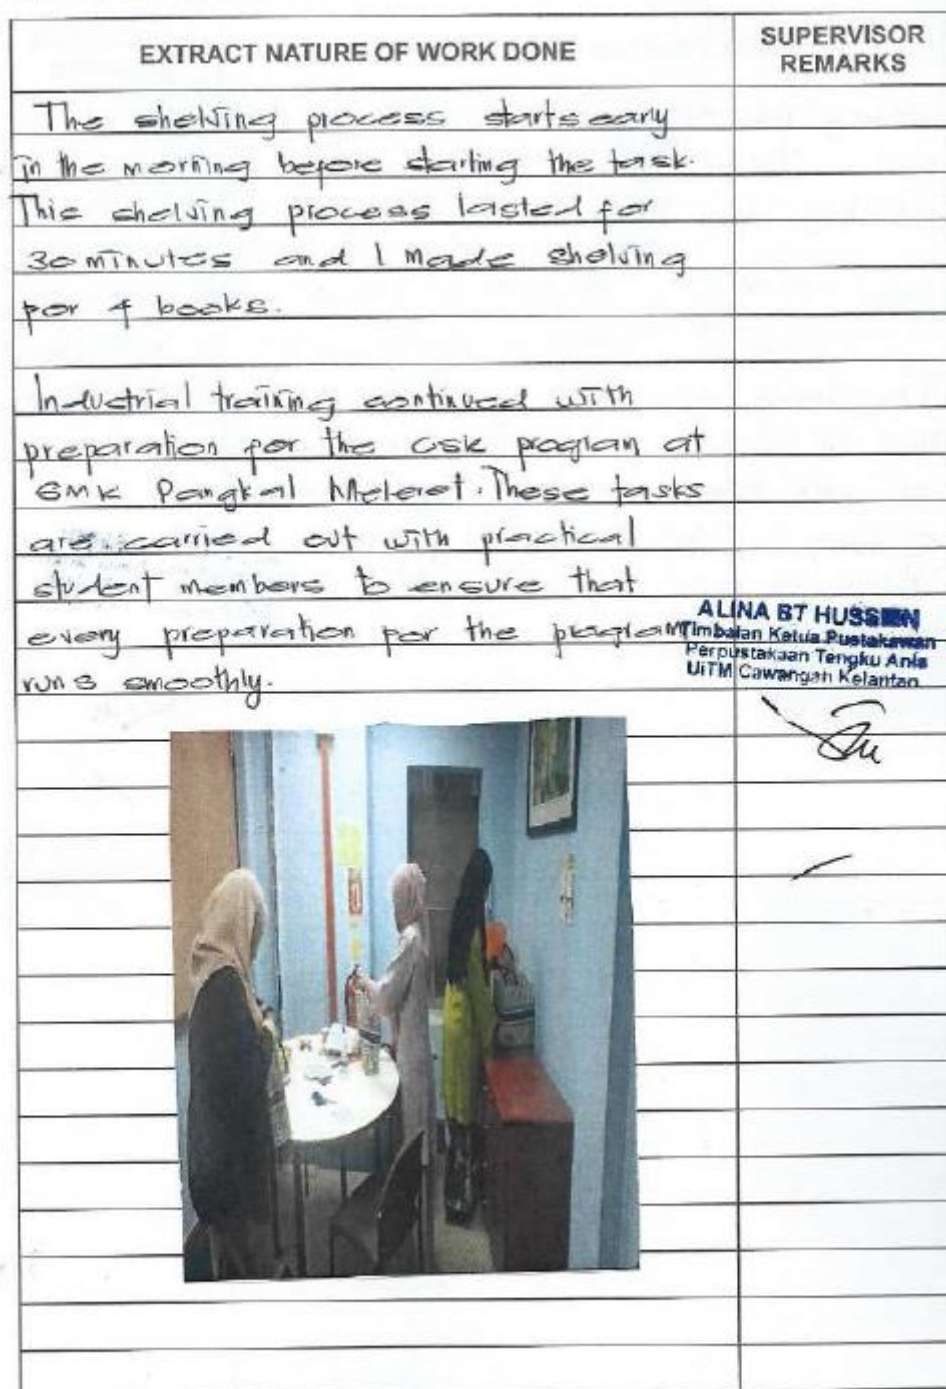 EXTRACT NATURE OF WORK DONE
SUPERVISOR
REMARKS
The shelving process starts early
in the morning before starting the task.
This shelving process lasted for
30 minutes and I made shelving
for 4 books.
Industrial training continued with
preparation for the CSK program at
SMK Pangkal Meleret. These tasks
are carried out with practical
student members to ensure that
every preparation for the program
runs smoothly.
ALINA BT HUSSIEN
Timbalan Ketua Pustakawan
Perpustakaan Tengku Anis
UiTM Cawangan Kelantan